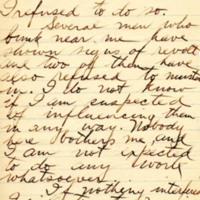 I refused to do so.
Several men who
bunk near me have
shown signs of revolt
and two of them have
also refused to muster
in. I do not know
if I am suspected
of influencing them
in any way. Nobody
here bothers me and
I am not expected
to do any work
whatsoever.
If nothing interferes